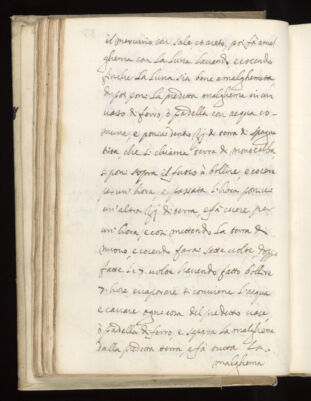 il mercurio con sale et aceto, poi fà amal
ghema con la Luna lavando, e cocendo
finche la Luna sia bene amalghemata
di poi poni la predetta malghema in un
vaso di ferro, ò padella con acqua co-
mune, e ponivi dentro di terra di spagna
trita, che si chiama terra di
e poni sopra il fuoco à bollire, e cocerà
per un'hora, e passata l'hora ponivi
un'altra di terra, e fà cocere, per
un'hora, e così mettendo la terra di
nuovo, e cocendo farai sette volte, dopo
fatte le 7 volte havendo fatto bollire
7 hore evaporare ti conviene l'acqua
e cavare ogni cosa del predetto vaso
ò padella di ferro, e separa la malghema
dalla predetta terra, e fà questa La
malghema